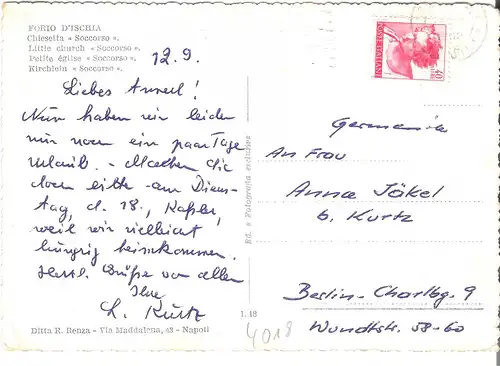 FORIO D'ISCHIA
Chiesetta « Soccorso ».
Little church « Soccorso ».
Petite église « Soccorso ».
Kirchlein « Soccorso ».
12.9.
Liebes Annerl!
Nun haben wir leider
nur noch ein paar Tage
Urlaub. - Machen Sie
doch bitte am Diens-
tag, d. 18., Kaßler,
weil wir vielleicht
hungrig heimkommen.
Herzl. Grüße von allen
Ihre
L. Kurtz
Ditta R. Renza - Via Maddalena, 43 - Napoli
Ed. e Fotografia esclusive
1. 48
4018
POSTE ITALIANE
40
Germania
An Frau
Anna Jäkel
b. Kurtz
Berlin-Charlbg. 9
Wundtstr. 58-60